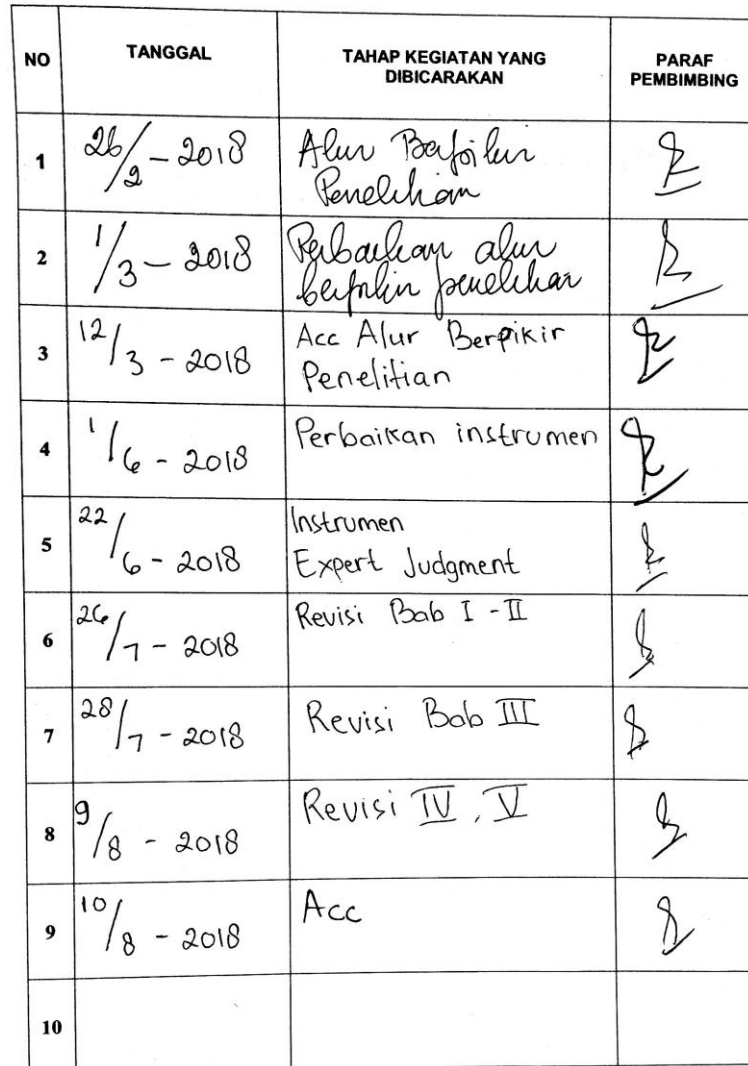 NO TANGGAL TAHAP KEGIATAN YANG DIBICARAKAN PARAF PEMBIMBING
1 26/2 - 2018 Alur Berpikir
Penelitian
2 1/3 - 2018 Perbaikan alur
berpikir penelitian
3 12/3 - 2018 Acc Alur Berpikir
Penelitian
4 1/6 - 2018 Perbaikan instrumen
5 22/6 - 2018 Instrumen
Expert Judgment
6 26/7 - 2018 Revisi Bab I - II
7 28/7 - 2018 Revisi Bab III
8 9/8 - 2018 Revisi IV, V
9 10/8 - 2018 Acc
10